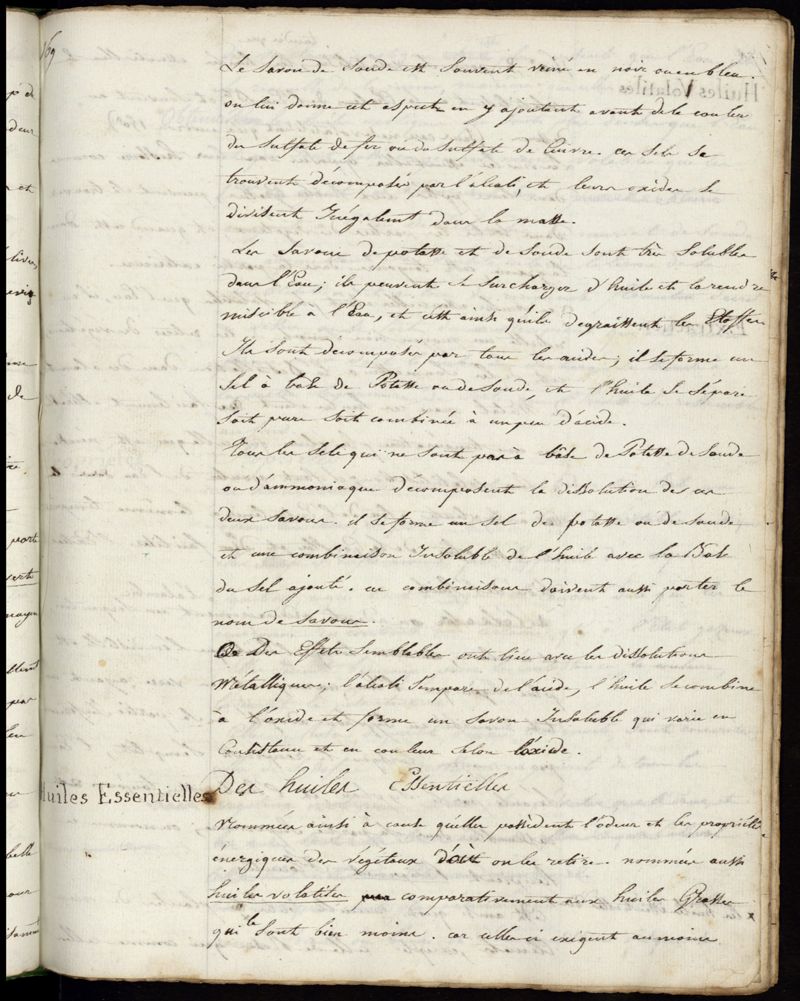 169
Le Savon de Soude est Souvent veiné en noir ou en bleu.
on lui donne cet aspect en y ajoutant avant de le couler
du Sulfate de fer ou du Sulfat de Cuivre. ces sels se
trouvent décomposés par l'alcali, et leurs oxides se
divisent Inégalemt dans la masse.
Les Savons de potasse et de Soude sont très solubles
dans l'Eau; ils peuvent se Surcharger d'huile et la rendre
miscible à l'Eau, et c'est ainsi qu'ils degraissent les Etoffes
Ils sont décomposés par tous les acides; il se forme un
Sel à base de Potasse ou de Soude, et l'huile se sépare
soit pure soit combinée à un peu d'acide.
Tous les sels qui ne sont pas à bâse de Potasse de Soude
ou d'ammoniaque décomposent la dissolution de ces
deux savons. il se forme un sel de potasse ou de Soude,
et une combinaison Insoluble de l'huile avec la Base
du Sel ajouté. ces combinaisons doivent aussi porter le
nom de Savons.
Des Effets Semblables ont lieu avec les dissolutions
Métalliques; l'alcali s'empare de l'acide, l'huile se combine
à l'oxide et forme un Savon Insoluble qui varie en
Consistance et en couleur selon l'oxide.
Huiles Essentielles
Des huiles Essentielles
Nommées ainsi à cause qu'elles possèdent l'odeur et les propriétés
énergiques des Végétaux d'où on les retire. nommées aussi
huiles volatiles comparativement aux huiles Grasses
qui le sont bien moins. car celles ci exigent au moins